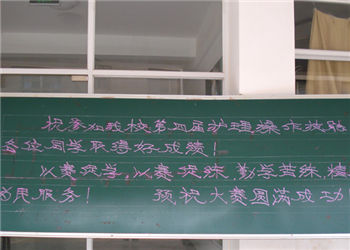 祝参加我校第四届护理操作技能
各位同学取得好成绩!
以赛促学,以赛促练,勤学苦练,精
为民服务! 预祝大赛圆满成功